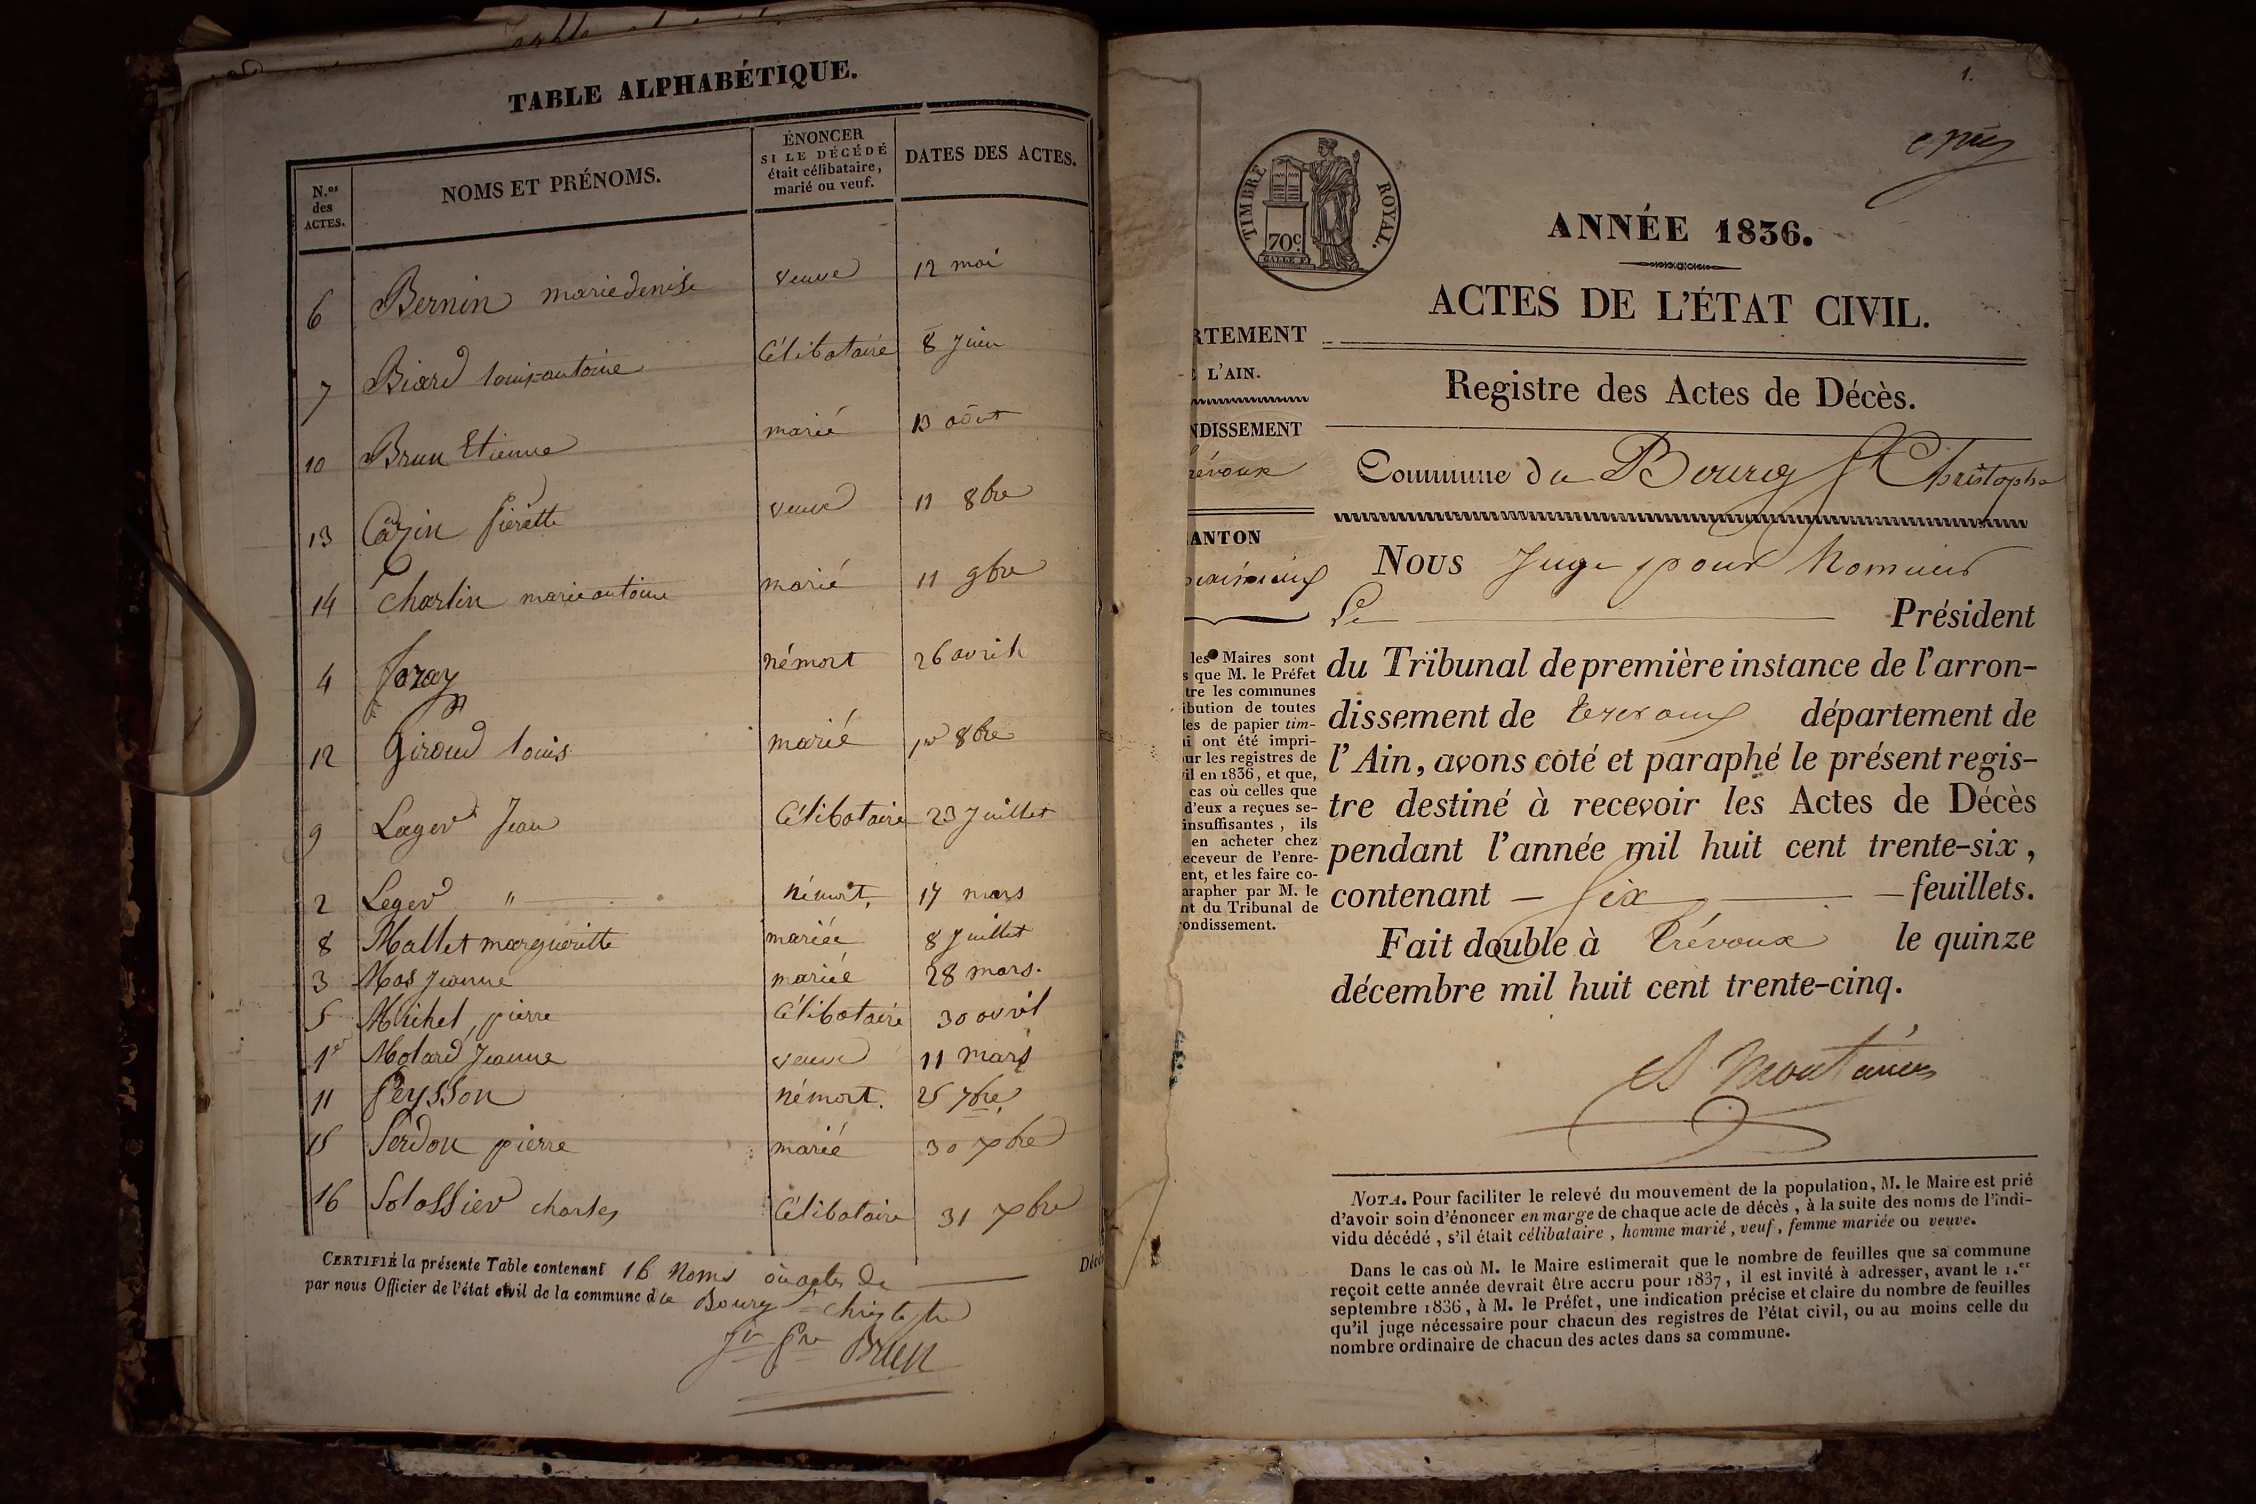 TABLE ALPHABÉTIQUE.
N.os des ACTES.
NOMS ET PRÉNOMS.
ÉNONCER
SI LE DÉCÉDÉ
était célibataire,
marié ou veuf.
DATES DES ACTES.
6 Bernin marie denise veuve 12 mai
7 Biard louis antoine Célibataire 8 Juin
10 Brun Etienne marié 13 août
13 Cazin pierrette veuve 11 8bre
14 Charlin marie antoine marié 11 9bre
4 Joray némort 26 avril
12 Giroud louis marié 1er 8bre
9 Lager Jean Célibataire 23 Juillet
2 Leger " némort, 17 mars
8 Mallet margueritte mariée 8 Juillet
3 Mas Jeanne mariée 28 mars.
5 Michel, pierre Célibataire 30 avril
1er Molard Jeanne veuve 11 mars
11 Peysson némort. 25 7bre,
15 Perdon pierre marié 30 xbre
16 Solassier charles Célibataire 31 xbre
CERTIFIÉ la présente Table contenant 16 Noms ou actes de
Décè
par nous Officier de l'état civil de la commune de Bourg St christophe
Brun
1.
TIMBRE ROYAL.
70c.
ANNÉE 1836.
ACTES DE L'ÉTAT CIVIL.
RTEMENT
L'AIN.
NDISSEMENT
révoux
ANTON
les Maires sont
s que M. le Préfet
tre les communes
ibution de toutes
les de papier tim-
i ont été impri-
ur les registres de
il en 1836, et que,
cas où celles que
d'eux a reçues se-
insuffisantes, ils
en acheter chez
eceveur de l'enre-
ent, et les faire co-
arapher par M. le
nt du Tribunal de
ondissement.
Registre des Actes de Décès.
Commune du Bourg St Christophe
NOUS Juge pour Monsieur
Le Président
du Tribunal de première instance de l'arron-
dissement de trevoux département de
l'Ain, avons coté et paraphé le présent regis-
tre destiné à recevoir les Actes de Décès
pendant l'année mil huit cent trente-six,
contenant — six — feuillets.
Fait double à Trévoux le quinze
décembre mil huit cent trente-cinq.
NOTA. Pour faciliter le relevé du mouvement de la population, M. le Maire est prié
d'avoir soin d'énoncer en marge de chaque acte de décès, à la suite des noms de l'indi-
vidu décédé, s'il était célibataire, homme marié, veuf, femme mariée ou veuve.
Dans le cas où M. le Maire estimerait que le nombre de feuilles que sa commune
reçoit cette année devrait être accru pour 1837, il est invité à adresser, avant le 1.er
septembre 1836, à M. le Préfet, une indication précise et claire du nombre de feuilles
qu'il juge nécessaire pour chacun des registres de l'état civil, ou au moins celle du
nombre ordinaire de chacun des actes dans sa commune.